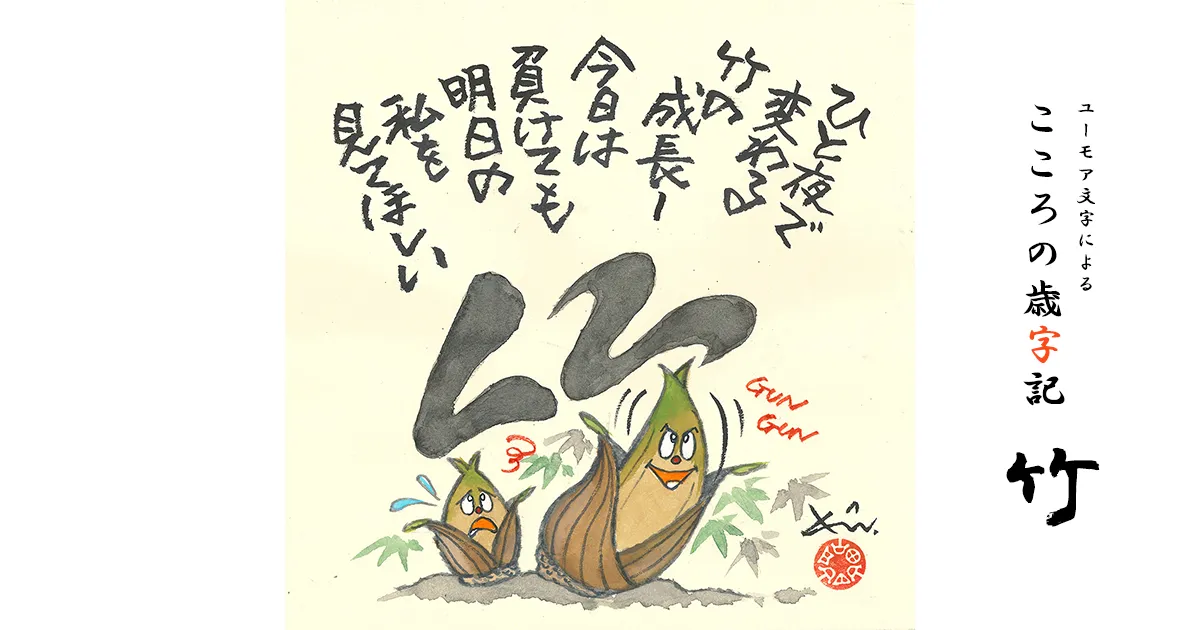 ユーモア文字による
こころの歳字記
竹
ひと夜で
変わる
竹の
成長ー
今日は
負けても
明日の
私を
見てほしい
GUN
GUN